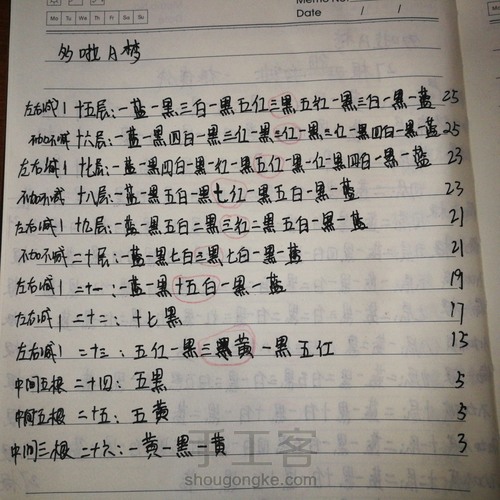 Memo No.
Mo Tu We Th Fr Sa Su
Date / /
多啦A梦
左右减1 十五层:一蓝一黑三白一黑五红三黑五红一黑三白一黑一蓝 25
不加不减 十六层:一蓝一黑四白一黑三红一黑三红一黑三红一黑四白一黑一蓝 25
左右减1 十七层:一蓝一黑四白一黑一红一黑五红一黑一红一黑四白一黑一蓝 23
不加不减 十八层:一蓝一黑五白一黑七红一黑五白一黑一蓝 23
左右减1 十九层:一蓝一黑五白二黑三红二黑五白一黑一蓝 21
不加不减 二十层:一蓝一黑七白三黑七白一黑一蓝 21
左右减1 二十一:一蓝一黑十五白一黑一蓝 19
左右减1 二十二:十七黑 17
左右减1 二十三:五红一黑三黄一黑五红 15
中间五根 二十四:五黑 5
中间五根 二十五:五黄 5
中间三根 二十六:一黄一黑一黄 3
手工客
shougongke.com